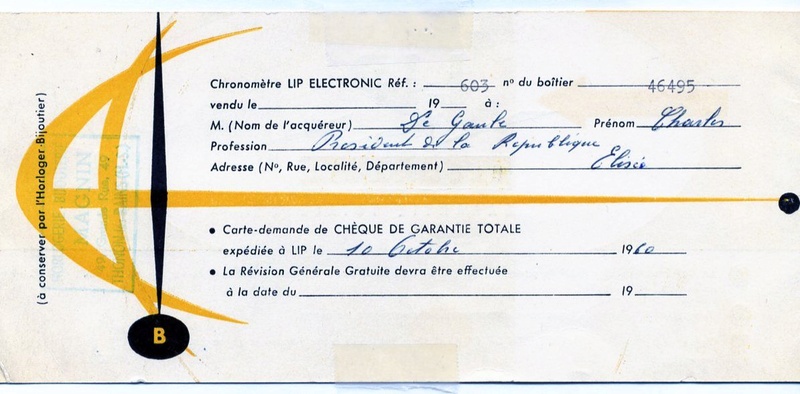 Chronomètre LIP ELECTRONIC Réf. : 603 nº du boîtier 46495
vendu le 19 à :
M. (Nom de l'acquéreur) De Gaule Prénom Charles
Profession President de la Republique
Adresse (Nº, Rue, Localité, Département) Elisée
• Carte-demande de CHÈQUE DE GARANTIE TOTALE
expédiée à LIP le 10 Octobre 1960
• La Révision Générale Gratuite devra être effectuée
à la date du 19
(à conserver par l'Horloger-Bijoutier)
MAGNIN
B